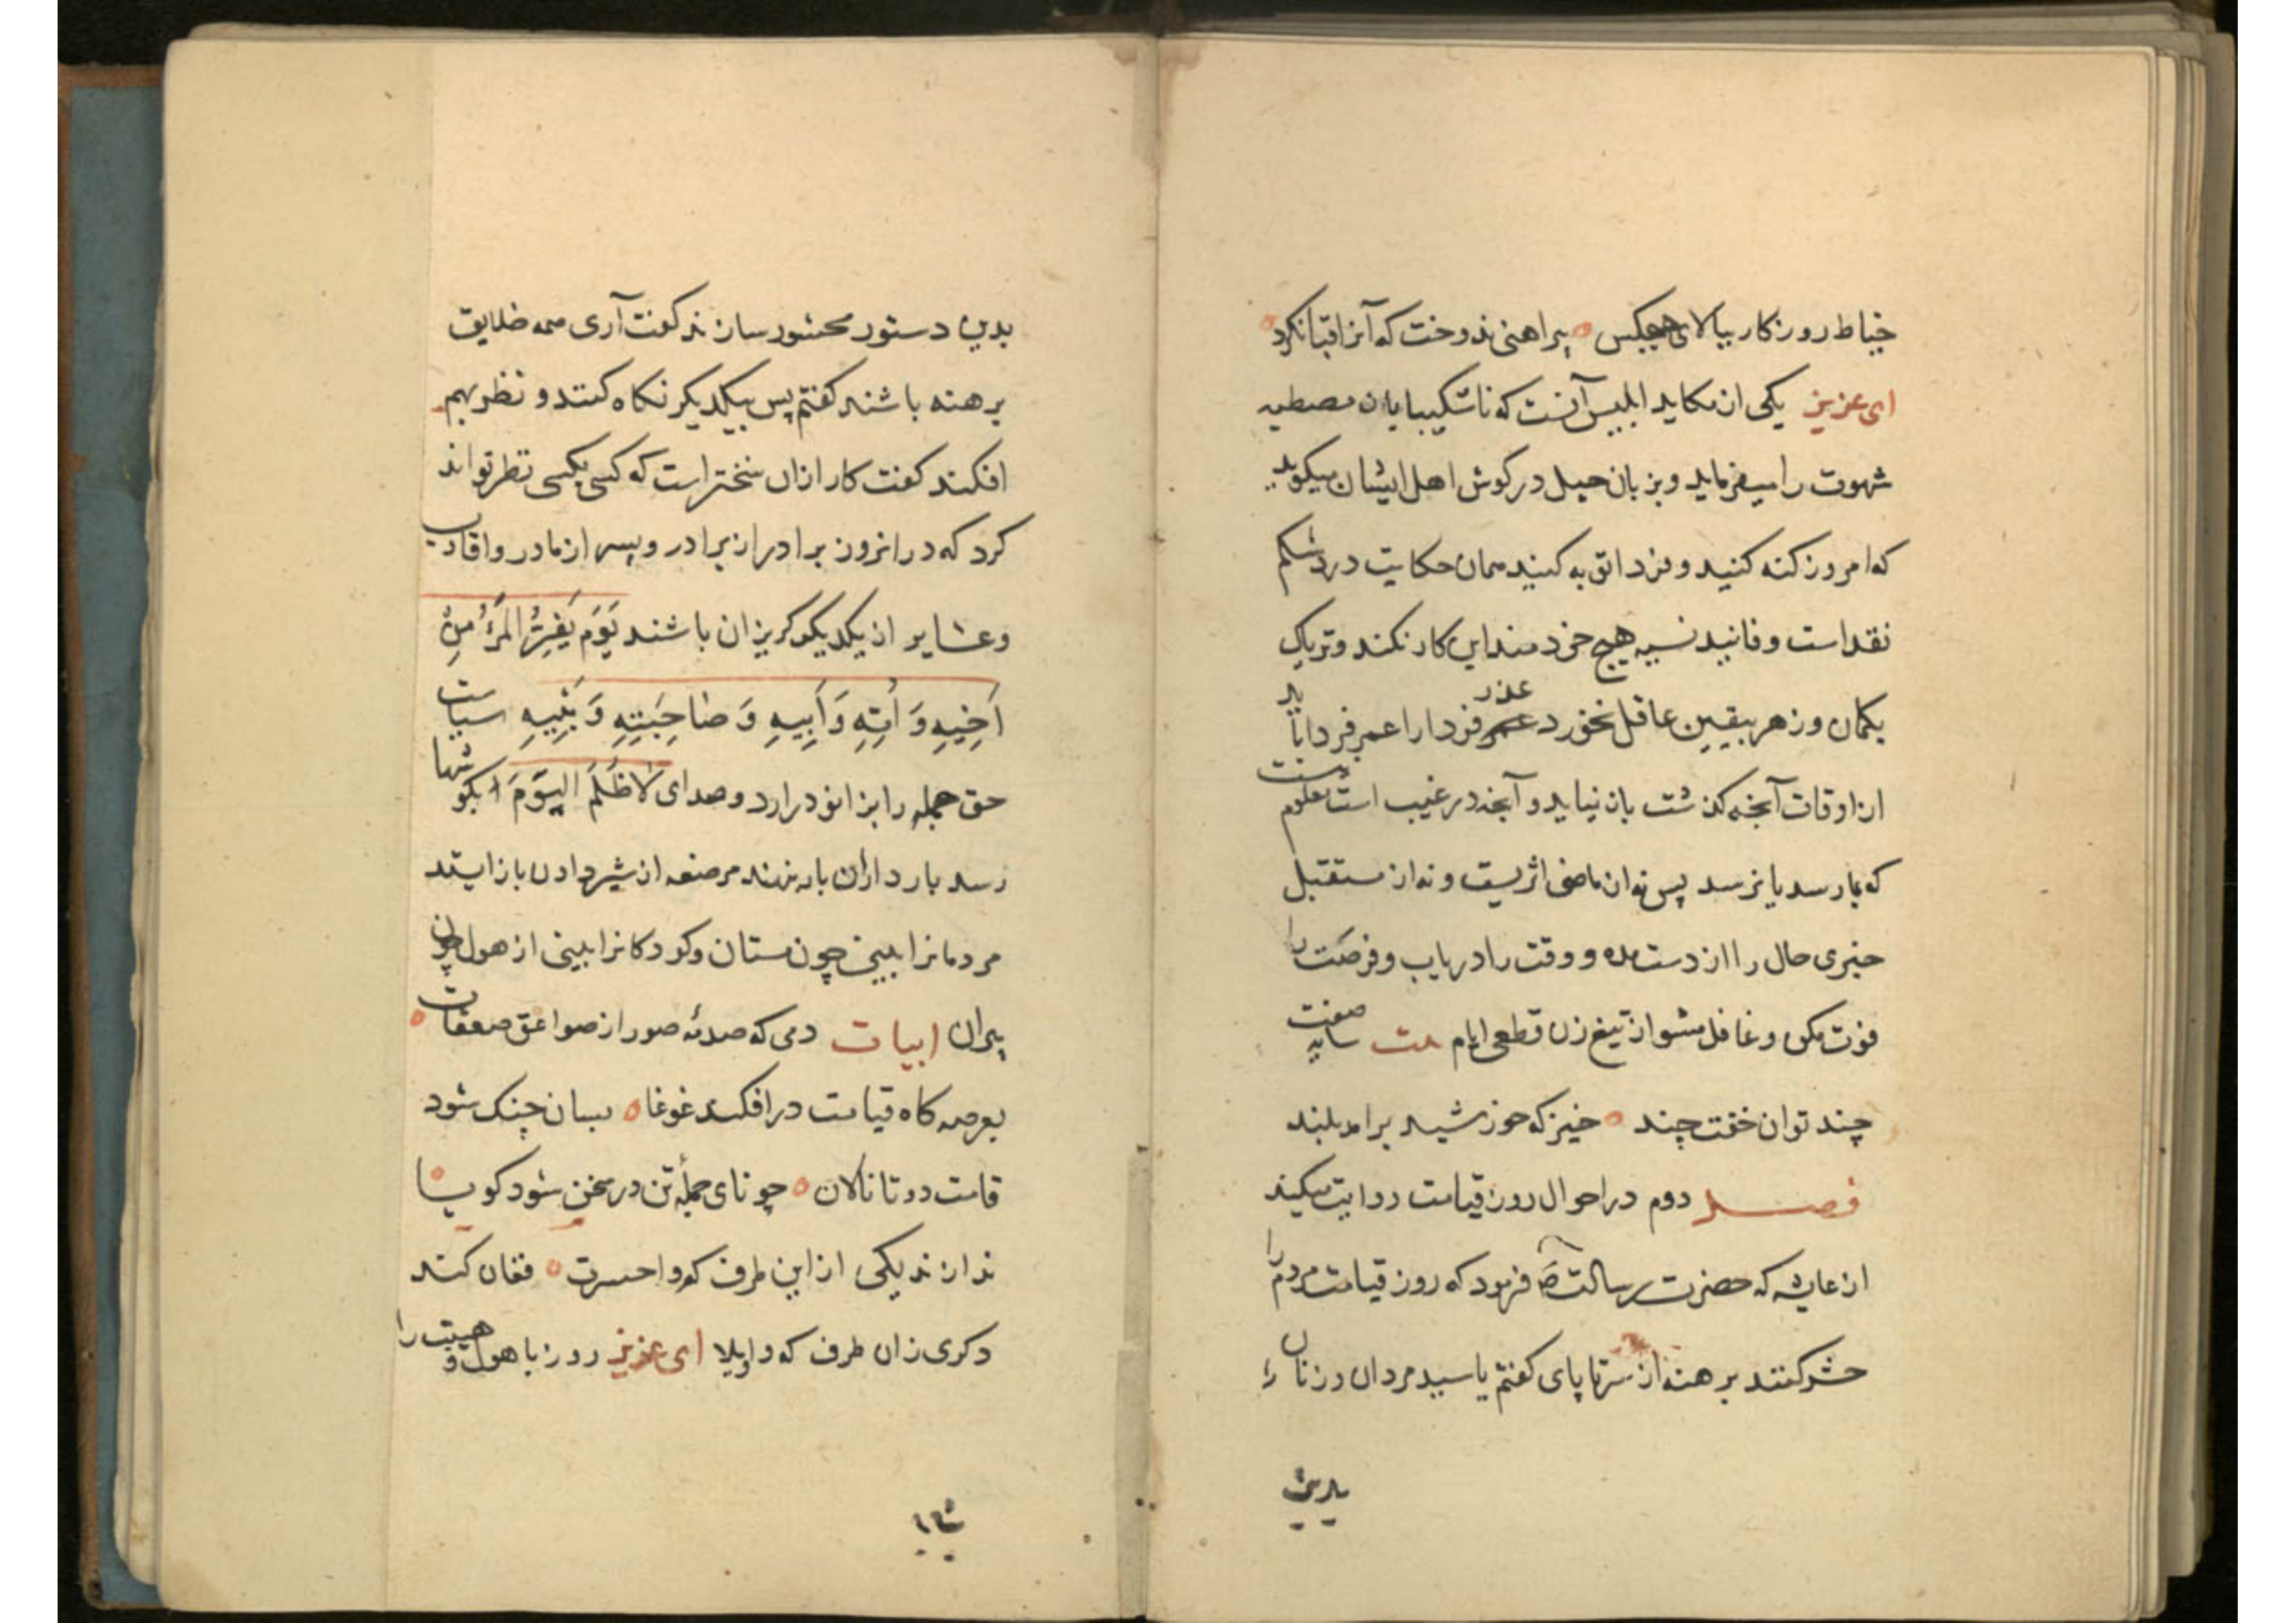 خیاط روزکار ببالای هیچکس پیراهنی ندوخت که آنرا قبا نکرد
ای عزیز یکی از مکاید ابلیس آنست که ناشکیبایان مصطبه
شهوت را میفرماید و بزبان حیل در کوش اهل ایشان میکوید
که امروز کنه کنید و فردا توبه کنید همان حکایت درد شکم
نقد است و فانید نسیه هیچ خردمند این کار نکند و تریاک
بکمان و زهر بیقین عاقل نخورد عذر فردا را عمر فردا باید
از اوقات آنچه کذشت باز نیاید و آنچه در غیب است معلوم نیست
که بما رسد یا نرسد پس نه از ماضی اثریست و نه از مستقبل
خبری حال را از دست مده و وقت را دریاب و فرصت را
فوت مکن و غافل مشو از تیغ زن قطعی ایام بیت سایه صفت
چند توان خفت چند خیز که خورشید برامد بلند
فصل دوم در احوال روز قیامت روایت میکند
از عایشه که حضرت رسالت ص فرمود که روز قیامت مردم را
حشر کنند برهنه از سر تا پای کفتم یا سید مردان و زنان را
بدین
بدین دستور محشور سازند کفت آری همه خلایق
برهنه باشند کفتم پس بیکدیکر نکاه کنند و نظر بهم
افکنند کفت کار ازان سختر است که کسی بکسی نظر تواند
کرد که در انروز برادر از برادر و پسر از مادر و اقارب
و عشایر از یکدیکر کریزان باشند یَوْمَ یَفِرُّ الْمَرْءُ مِنْ
اَخِیهِ وَ اُمِّهِ وَ اَبِیهِ وَ صَاحِبَتِهِ وَ بَنِیهِ سیاست
حق جمله را بزانو درارد و صدای لَا ظُلْمَ الیَوْمَ بکوشها
رسد بارداران بار بنهند مرضعه از شیر دادن باز ایستد
مردمانرا بینی چون مستان و کودکانرا بینی از هول چون
پیران ابیات دمی که صدمه صور از صواعق صعقات
بعرصه کاه قیامت درافکند غوغا بسان چنک شود
قامت دوتا نالان چو نای جمله تن در سخن شود کویا
ندا زند یکی از این طرف که واحسرت فغان کند
دکری زان طرف که واویلا ای عزیز روز با هول و هیبت را